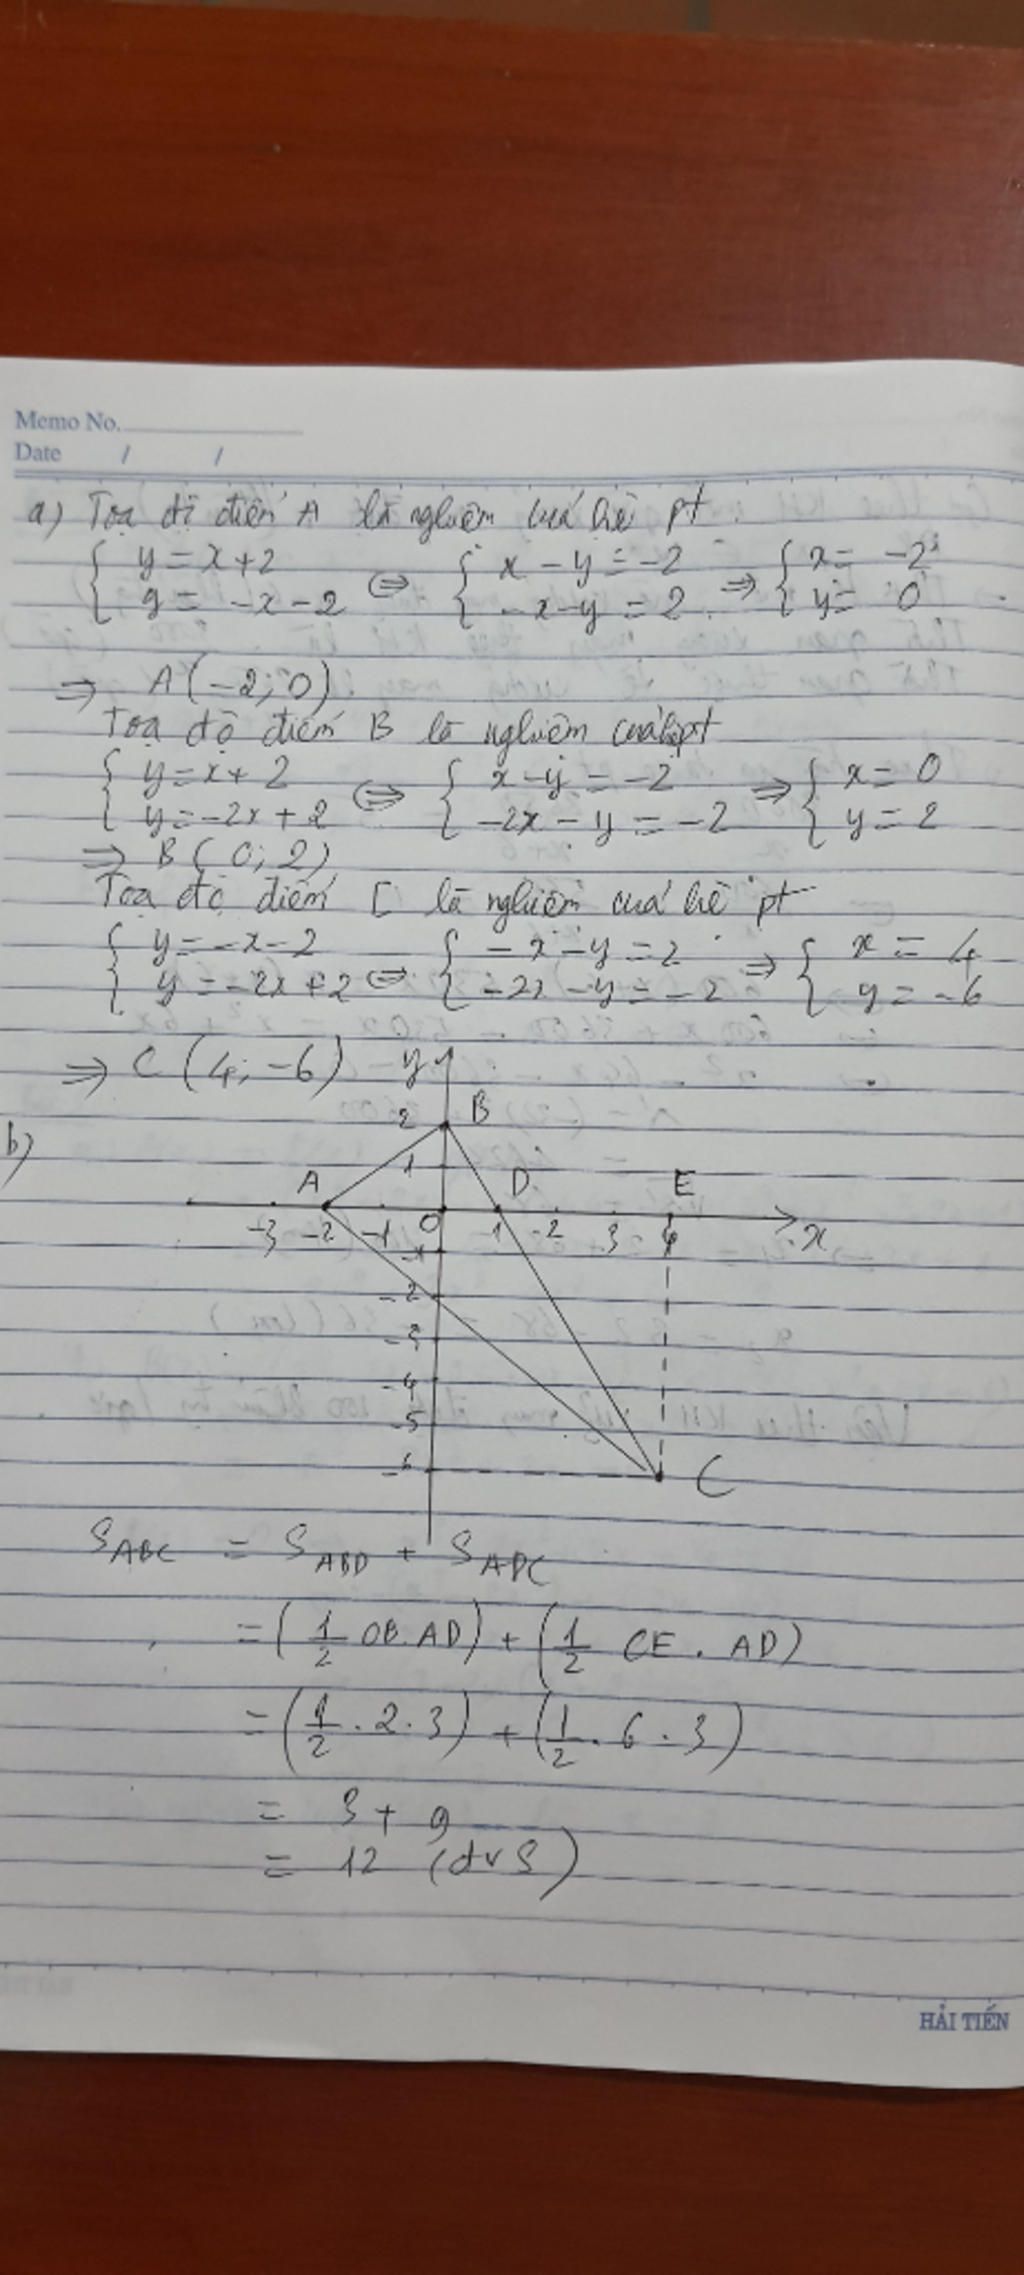 Memo No.
Date / /
a) Toạ độ điểm A là nghiệm của hệ pt
{ y = x + 2 ⇔ { x - y = -2 ⇒ { x = -2
{ y = -x - 2 { -x - y = 2 { y = 0
⇒ A (-2; 0)
Toạ độ điểm B là nghiệm của hệ pt
{ y = x + 2 ⇔ { x - y = -2 ⇒ { x = 0
{ y = -2x + 2 { -2x - y = -2 { y = 2
⇒ B (0; 2)
Toạ độ điểm C là nghiệm của hệ pt
{ y = -x - 2 ⇔ { -x - y = 2 ⇒ { x = 4
{ y = -2x + 2 { -2x - y = -2 { y = -6
⇒ C (4; -6)
y
b)
2 B
1
A D E
-3 -2 -1 O 1 2 3 4 x
-1
-2
-3
-4
-5
-6 C
S_ABC = S_ABD + S_ADC
= (1/2 OB. AD) + (1/2 CE . AD)
= (1/2 . 2 . 3) + (1/2 . 6 . 3)
= 3 + 9
= 12 (đvS)
HẢI TIẾN